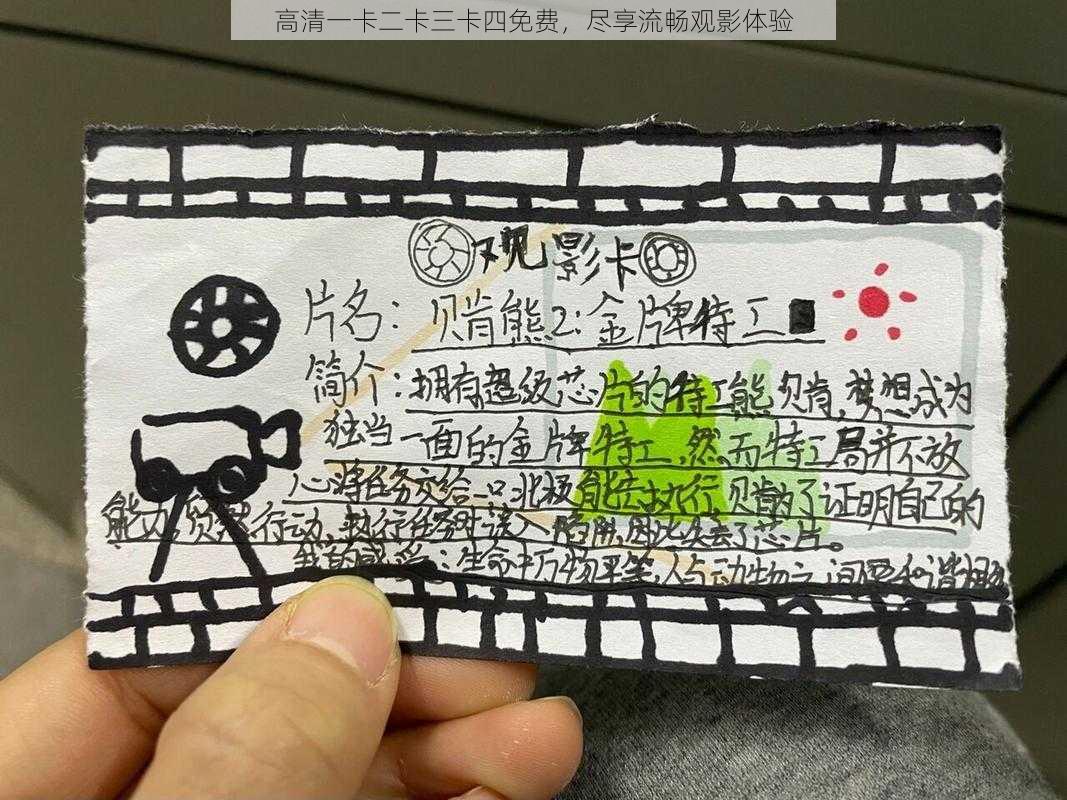 高清一卡二卡三卡四免费，尽享流畅观影体验
观影卡
片名：贝肯熊2：金牌特工
简介：拥有超级芯片的特工熊贝肯，梦想成为
独当一面的金牌特工，然而特工局并不放
心将任务交给一只北极熊去执行，贝肯为了证明自己的
能力，行动，执行任务时误入陷阱，因此失去了芯片。
我的感受：生命中万物平等，人与动物之间要和谐相处